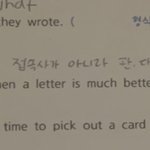 what
they wrote. ( 형식
접속사가 아니라 관.대
en a letter is much bette
time to pick out a card